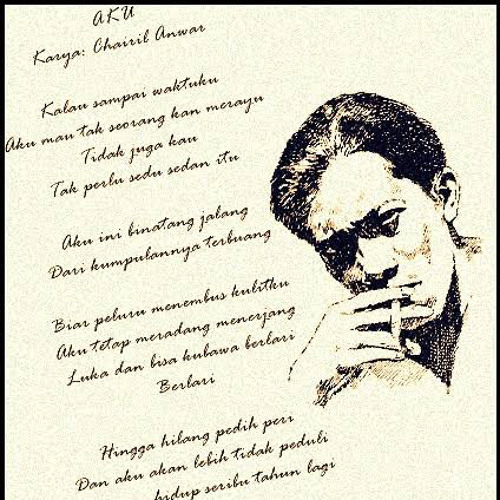 AKU
Karya: Chairil Anwar
Kalau sampai waktuku
Aku mau tak seorang kan merayu
Tidak juga kau
Tak perlu sedu sedan itu
Aku ini binatang jalang
Dari kumpulannya terbuang
Biar peluru menembus kulitku
Aku tetap meradang menerjang
Luka dan bisa kubawa berlari
Berlari
Hingga hilang pedih peri
Dan aku akan lebih tidak peduli
hidup seribu tahun lagi